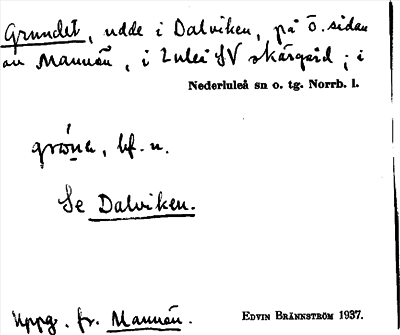 Grundet, udde i Dalviken, på ö. sidan
av Mannön, i Luleå SV skärgård; i
Nederluleå sn o. tg. Norrb. l.
bf. n.
Se Dalviken.
Uppg. fr. Mannön. EDVIN BRÄNNSTRÖM 1937.